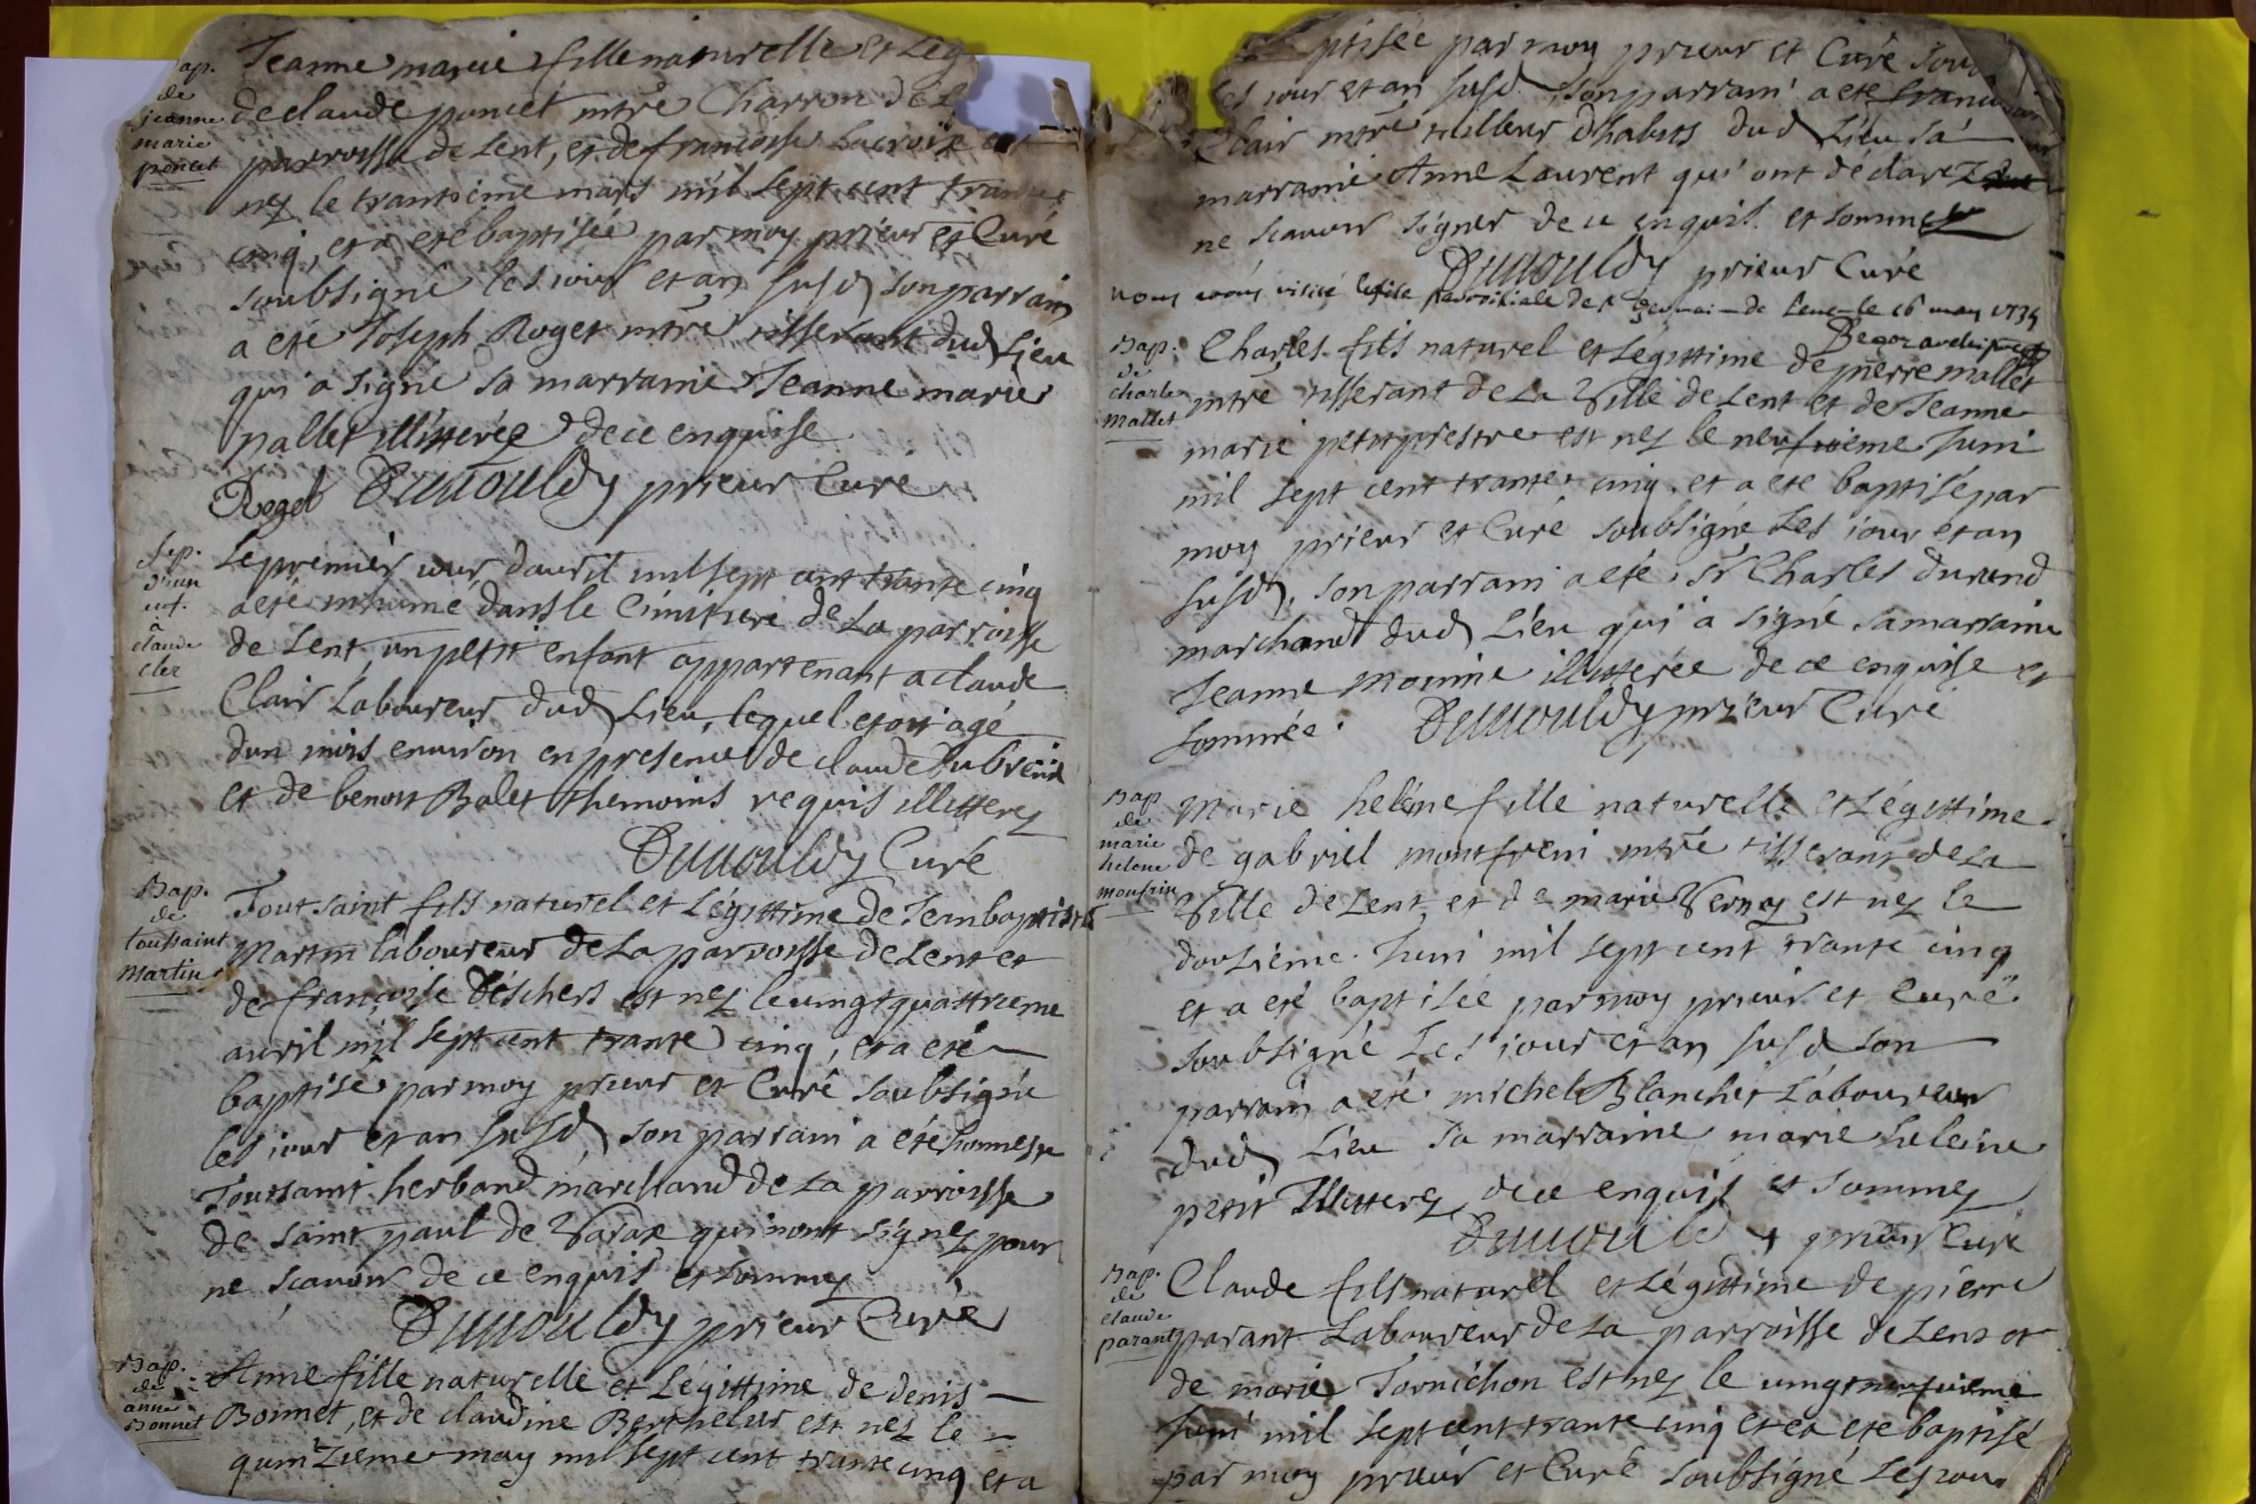 Bap.
de
jeanne
marie
poncet
Jeanne marie fille naturelle et Leg
de claude poncet mtre Charron de L
parroisse de Lent, et de francoise Lacroix est
nez le trantieme mars mil sept cent trante
cinq, et a ete baptisée par moy prieur et Curé
soubsigné les jour et an susd son parrain
a ete Joseph Roget mtre tisserant dud Lieu
qui a signé sa marraine Jeanne marie
pallet illitterée de ce enquise
Roget Duuouldy prieur Curé
Sep.
d'un
enf.
à
claude
cler
Le premier jour dauril mil sept cent trante cinq
a eté inhumé dans le Cimitiere de La parroisse
de Lent, un petit enfant appartenant a claude
Clair Laboureur dud Lieu, lequel etoit agé
dun mois enuiron en presence de claude Dubreüil
et de benoit Balet themoins requis illitterez
Duuouldy Curé
Bap.
de
toussaint
martin
Toutsaint fils naturel et Légittime de Jeanbaptiste
Martin laboureur de La parroisse de Lent et
de françoise Déschers est nez le uingt quattrieme
auril mil sept cent trante cinq, et a eté
baptisé par moy prieur et Curé soubsigné
les jour et an susd son parrain a eté honneste
Toutsaint herband marchand de La parroisse
de saint paul de Varax qui nont signez pour
ne scauoir de ce enquis et sommez
Duuouldy prieur Curé
Bap.
de
anne
Bonnet
Anne fille naturelle et Légittime de denis
Bonnet, et de claudine Berthelet est nez le
quinzieme may mil sept cent trante cinq et a
ptisée par moy prieur et Curé sou
les jour et an susd son parrain a ete francois
Clair mtre tailleur dhabits dud Lieu sa
marraine Anne Laurent qui ont déclarez
ne scauoir signer de ce enquis et sommez
Duuouldy prieur Curé
nous auons visité leglise parroissiale de st germain de Lent le 16 may 1735
Bap.
de
charle
mallet
Charles fils naturel et Légittime de pierre mallet
mtre tisserant de La Ville de Lent et de Jeanne
marie petitprestre est nez le neufuieme Juin
mil sept cent trante cinq, et a ete baptisé par
moy prieur et Curé soubsigné Les jour et an
susd, son parrain a eté sr Charles durand
marchand dud Lieu qui a signé sa marraine
Jeanne monnie illitterée de ce enquise et
sommée. Duuouldy prieur Curé
Bap
de
marie
helene
monfrin
Marie heléne fille naturelle et Légittime
de gabriel montfrein mtre tisserant de La
Ville de Lent et de marie Vernay est nez le
douzième Juin mil sept cent trante cinq
et a eté baptisée par moy prieur et Curé
soubsigné Les jour et an susd son
parrain a eté michel Blanchet Laboureur
dud Lieu sa marraine marie heleine
petit Illitterez de ce enquis et sommez
Duuouldy prieur Curé
Bap.
de
claude
parant
Claude fils naturel et Légittime de pierre
parant Laboureur de La parroisse de Lent et
de marie Tornichon est nez le uingtneufuieme
Juin mil sept cent trante cinq et ea ete baptisé
par moy prieur et Curé soubsigné Les jour